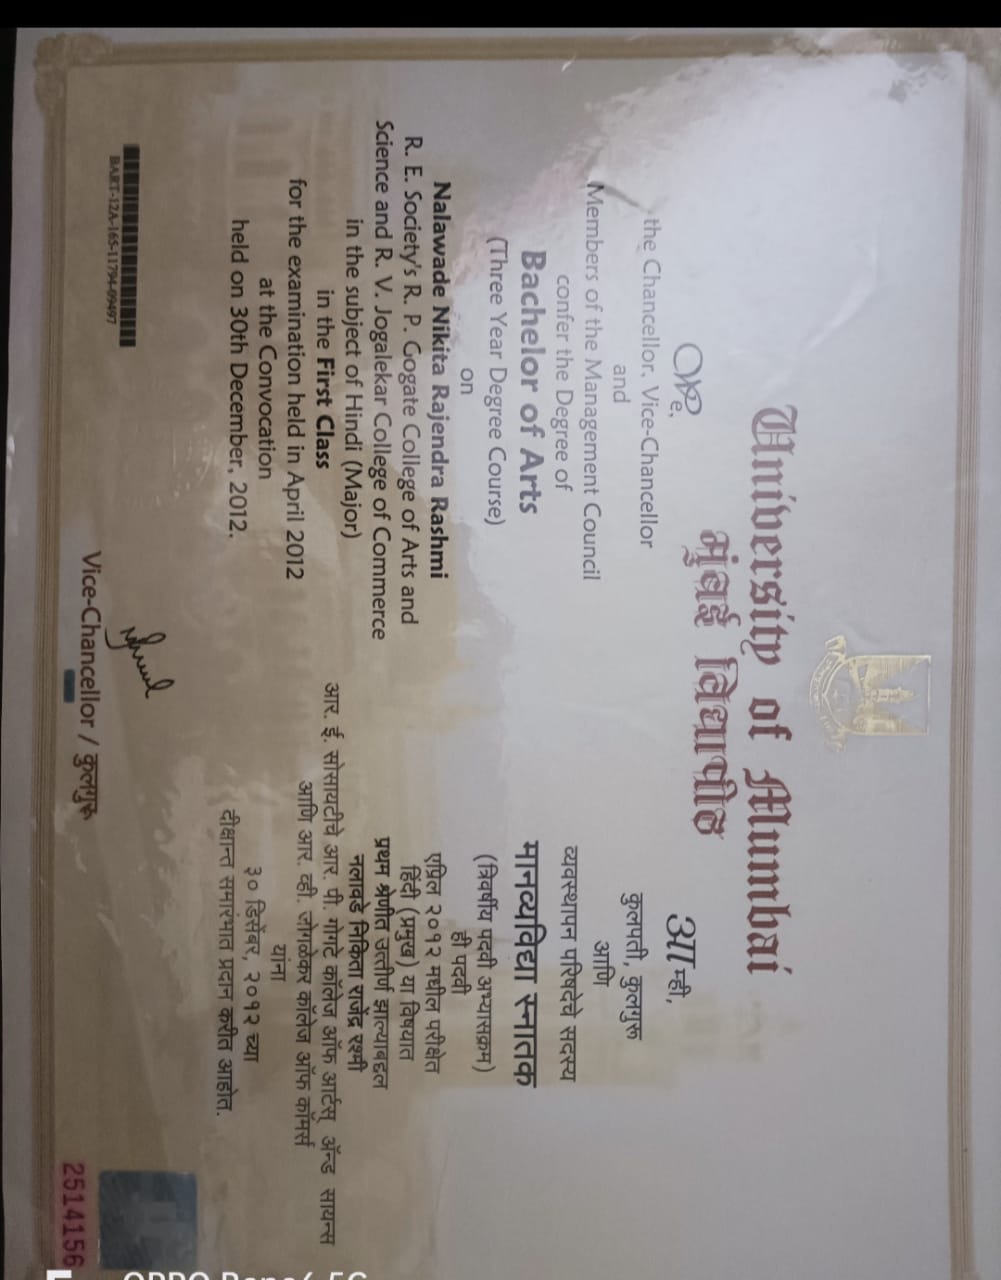 University of Mumbai
मुंबई विद्यापीठ
We,
the Chancellor, Vice-Chancellor
and
Members of the Management Council
confer the Degree of
Bachelor of Arts
(Three Year Degree Course)
on
Nalawade Nikita Rajendra Rashmi
R. E. Society's R. P. Gogate College of Arts and
Science and R. V. Jogalekar College of Commerce
in the subject of Hindi (Major)
in the First Class
for the examination held in April 2012
at the Convocation
held on 30th December, 2012.
आम्ही,
कुलपती, कुलगुरू
आणि
व्यवस्थापन परिषदेचे सदस्य
मानव्यविद्या स्नातक
(त्रिवर्षीय पदवी अभ्यासक्रम)
ही पदवी
एप्रिल २०१२ मधील परीक्षेत
हिंदी (प्रमुख) या विषयात
प्रथम श्रेणीत उत्तीर्ण झाल्याबद्दल
नलावडे निकिता राजेंद्र रश्मी
आर. ई. सोसायटीचे आर. पी. गोगटे कॉलेज ऑफ आर्टस् अ‍ॅन्ड सायन्स
आणि आर. व्ही. जोगळेकर कॉलेज ऑफ कॉमर्स
यांना
३० डिसेंबर, २०१२ च्या
दीक्षान्त समारंभात प्रदान करीत आहोत.
BART-12A-165-11794-09497
Vice-Chancellor / कुलगुरू
2514156